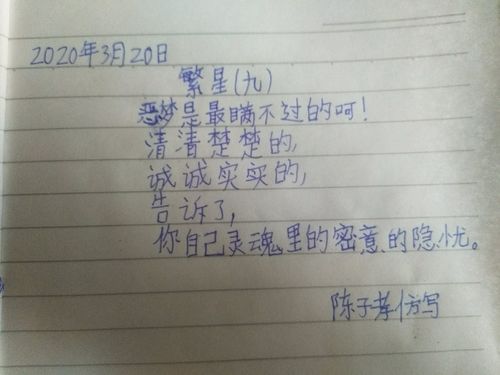 2020年3月20日
繁星(九)
恶梦是最瞒不过的呵!
清清楚楚的,
诚诚实实的,
告诉了,
你自己灵魂里的密意的隐忧。
陈子孝仿写